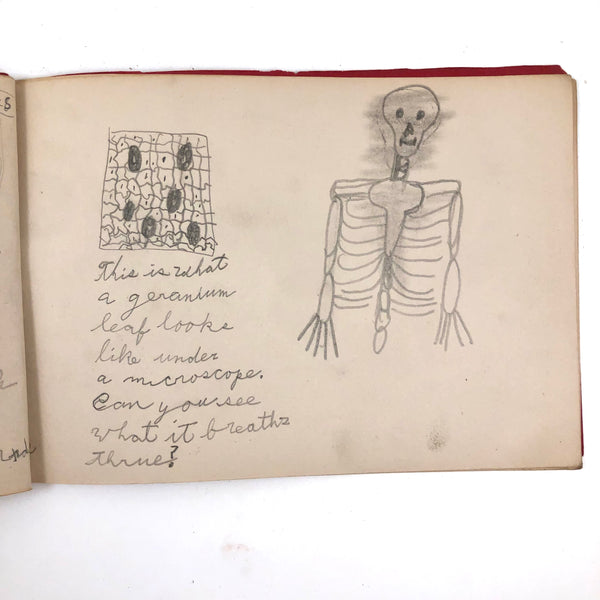 This is what
a geranium
leaf looks
like under
a microscope.
Can you see
what it breaths
thrue?